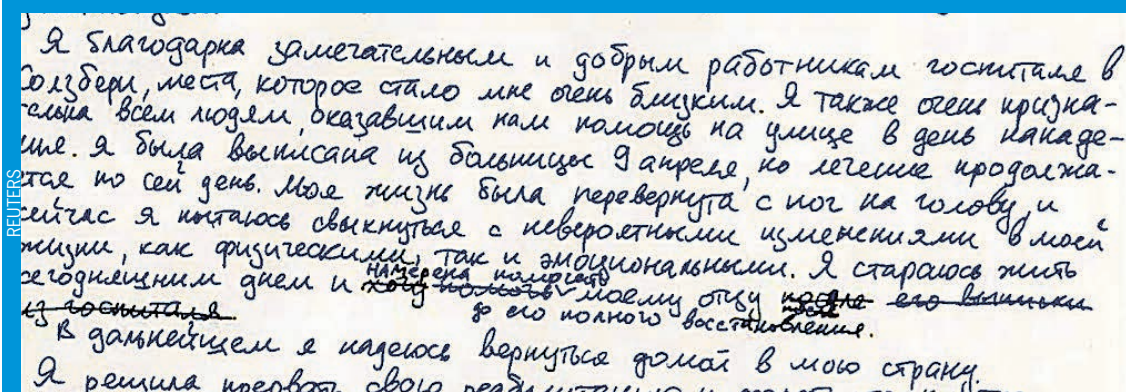 Я благодарна замечательным и добрым работникам госпиталя в
Солзбери, места, которое стало мне очень близким. Я также очень призна-
тельна всем людям, оказавшим нам помощь на улице в день нападе-
ния. Я была выписана из больницы 9 апреля, но лечение продолжа-
ется по сей день. Моя жизнь была перевернута с ног на голову, и
сейчас я пытаюсь свыкнуться с невероятными изменениями в моей
жизни, как физическими, так и эмоциональными. Я стараюсь жить
намерена помогать
сегодняшним днем и хочу помочь моему отцу после его выписки
из госпиталя
до его полного восстановления.
В дальнейшем я надеюсь вернуться домой в мою страну.
Я решила прервать свою реабилитацию и
REUTERS